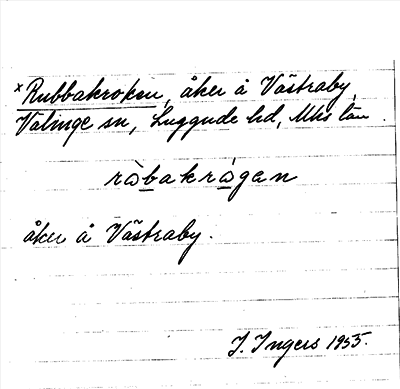 x Rubbakroken, åker å Västraby,
Välinge sn, Luggude hd, Mlhs län.
ràbakrågan
åker å Västraby.
J. Ingers 1955.